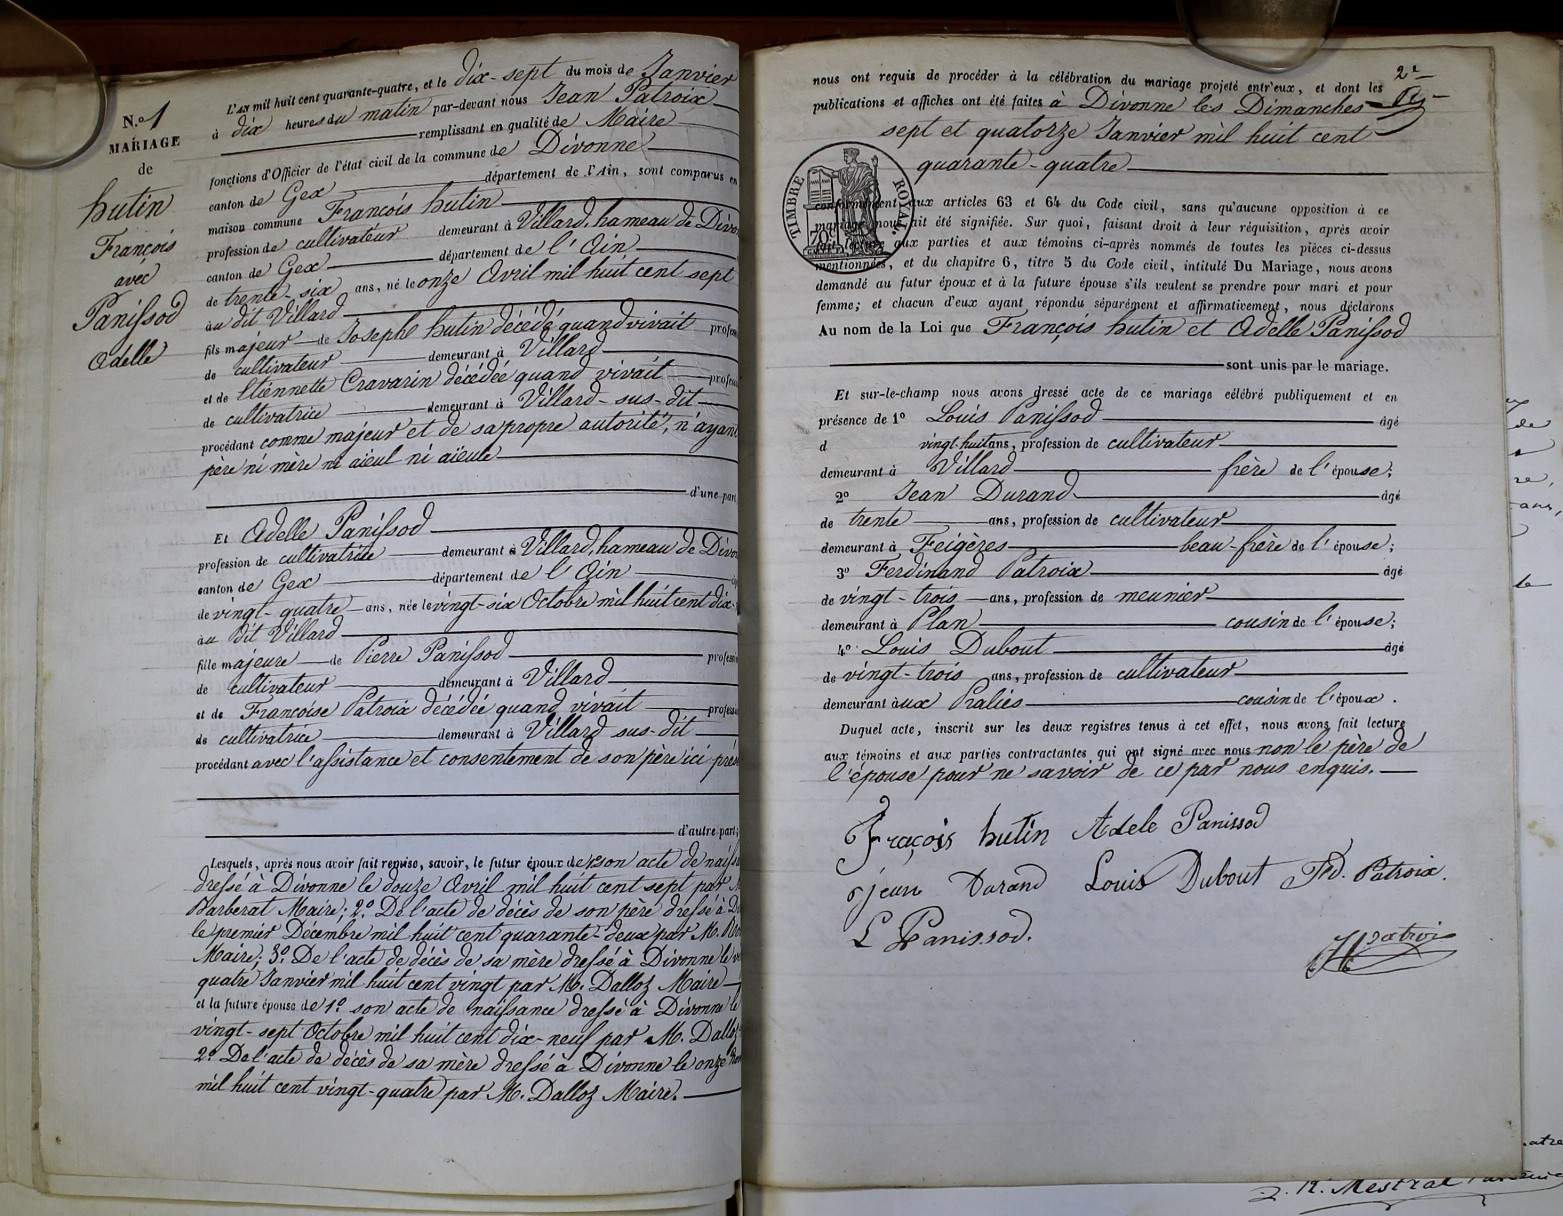 N.o 1
MARIAGE
de
hutin
François
avec
Panissod
Adelle
L'AN mil huit cent quarante-quatre, et le dix-sept du mois de Janvier
à dix heures du matin par-devant nous Jean Patroix
remplissant en qualité de Maire
fonctions d'Officier de l'état civil de la commune de Divonne
canton de Gex département de l'Ain, sont comparus en
maison commune François hutin
profession de cultivateur demeurant à Villard, hameau de Divo
canton de Gex département de l'Ain
de trente-six ans, né le onze Avril mil huit cent sept
au dit Villard
fils majeur de Joseph hutin décédé quand vivait profes
de cultivateur demeurant à Villard
et de Etiennette Cravarin décédée quand vivait profes
de cultivatrice demeurant à Villard-sus-dit
procédant comme majeur et de sa propre autorité, n'ayant
père ni mère ni aïeul ni aïeule
d'une par
Et Adelle Panissod
profession de cultivatrice demeurant à Villard, hameau de Divo
canton de Gex département de l'Ain
de vingt-quatre ans, née le vingt-six Octobre mil huit cent dix-
au dit Villard
fille majeure de Pierre Panissod profess
de cultivateur demeurant à Villard
et de Françoise Patroix décédée quand vivait profess
de cultivatrice demeurant à Villard sus-dit
procédant avec l'assistance et consentement de son père ici prés
d'autre part;
Lesquels, après nous avoir fait remise, savoir, le futur époux de 1o son acte de naiss
dressé à Divonne le douze Avril mil huit cent sept par M
Barberat Maire; 2o De l'acte de décès de son père dressé à D
le premier Décembre mil huit cent quarante-deux par M.
Maire; 3o De l'acte de décès de sa mère dressé à Divonne le
quatre Janvier mil huit cent vingt par M. Dalloz Maire
et la future épouse de 1o son acte de naissance dressé à Divonne le
vingt-sept Octobre mil huit cent dix-neuf par M. Dalloz
2o De l'acte de décès de sa mère dressé à Divonne le onze
mil huit cent vingt-quatre par M. Dalloz Maire.
2e
nous ont requis de procéder à la célébration du mariage projeté entr'eux, et dont les
publications et affiches ont été faites à Divonne les Dimanches
sept et quatorze Janvier mil huit cent
quarante-quatre
TIMBRE ROYAL
conformément aux articles 63 et 64 du Code civil, sans qu'aucune opposition à ce
mariage nous ait été signifiée. Sur quoi, faisant droit à leur réquisition, après avoir
fait lecture aux parties et aux témoins ci-après nommés de toutes les pièces ci-dessus
mentionnées, et du chapitre 6, titre 5 du Code civil, intitulé Du Mariage, nous avons
demandé au futur époux et à la future épouse s'ils veulent se prendre pour mari et pour
femme; et chacun d'eux ayant répondu séparément et affirmativement, nous déclarons
Au nom de la Loi que François hutin et Adelle Panissod
sont unis par le mariage.
Et sur-le-champ nous avons dressé acte de ce mariage célébré publiquement et en
présence de 1o Louis Panissod âgé
d vingt-huit ans, profession de cultivateur
demeurant à Villard frère de l'épouse;
2o Jean Durand âgé
de trente ans, profession de cultivateur
demeurant à Feigères beau-frère de l'épouse;
3o Ferdinand Patroix âgé
de vingt-trois ans, profession de meunier
demeurant à Plan cousin de l'épouse;
4o Louis Dubout âgé
de vingt-trois ans, profession de cultivateur
demeurant aux Pralies cousin de l'époux.
Duquel acte, inscrit sur les deux registres tenus à cet effet, nous avons fait lecture
aux témoins et aux parties contractantes qui ont signé avec nous non le père de
l'épouse pour ne savoir de ce par nous enquis.
Fraçois hutin Adele Panissod
jean Durand Louis Dubout Fd. Patroix.
L Panissod.
Patroix